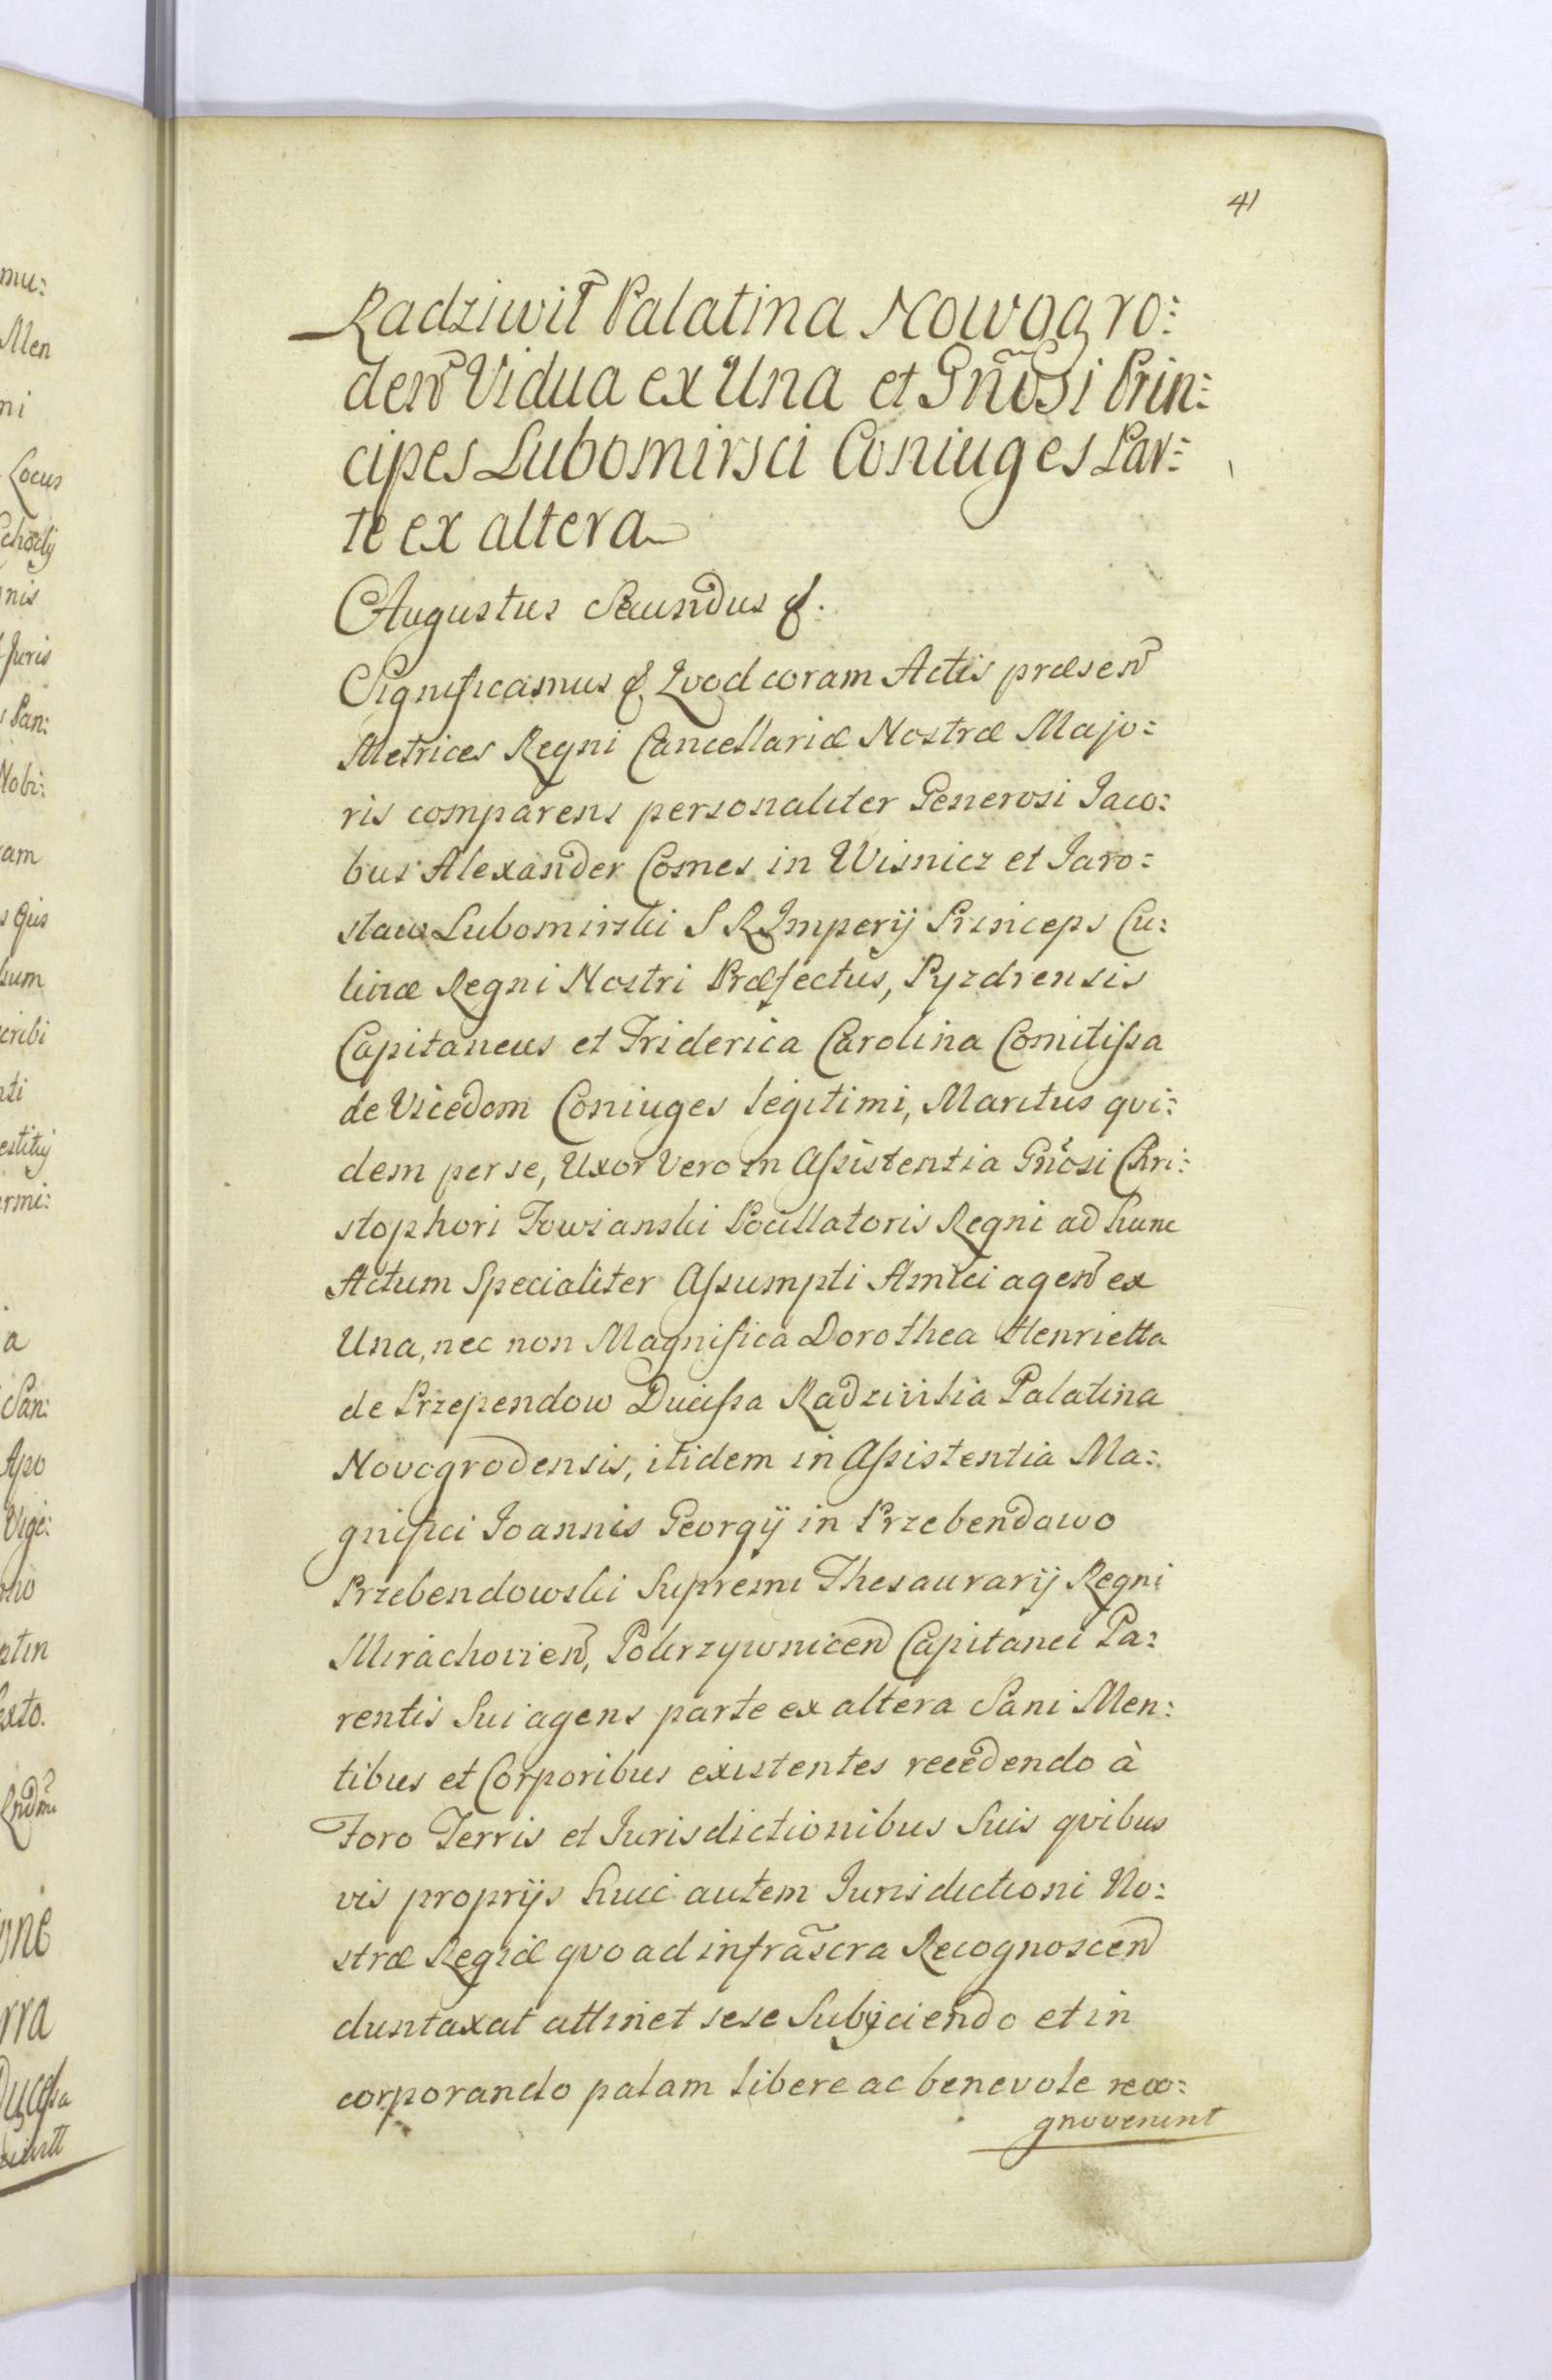 41
Radziwił Palatina Nowogro:
deñ Vidua ex Una et Gñosi Prin:
cipes Lubomirsci Coniuges Par:
te ex altera
Augustus Secundus &.
Significamus & Qvod coram Actis præseñ
Metrices Regni Cancellariæ Nostræ Majo:
ris comparens personaliter Generosi Jaco:
bus Alexander Comes in Wisnicz et Jaro:
slaw Lubomirski S R Imperij Princeps Cu:
linæ Regni Nostri Præfectus, Pyzdrensis
Capitaneus et Friderica Carolina Comitissa
de Vicedom Coniuges legitimi, Maritus qvi:
dem per se, Uxor Vero in Assistentia Gñosi Chri:
stophori Towianski Pocillatoris Regni ad hunc
Actum Specialiter Assumpti Amici ageñ ex
Una, nec non Magnifica Dorothea Henrietta
de Przependow Ducissa Radzivilia Palatina
Novogrodensis, itidem in Assistentia Ma:
gnifici Joannis Georgij in Przebendowo
Przebendowski Supremi Thesaurarij Regni
Mirachovieñ, Pokrzywniceñ Capitanei Pa:
rentis Sui agens parte ex altera Sani Men:
tibus et Corporibus existentes recedendo à
Foro Terris et Jurisdictionibus Suis qvibus
vis proprijs huic autem Jurisdictioni No:
stræ Regiæ qvo ad infrãscra Recognosceñ
duntaxat attinet sese Subijciendo et in
corporando palam libere ac benevole reco:
gnoverunt
mu:
Men
ni
Locus
nis
Juris
Pan:
Nobi:
am
cribi
nti
ermi:
a
San:
Apo
Vige:
ntin
exto.
rra